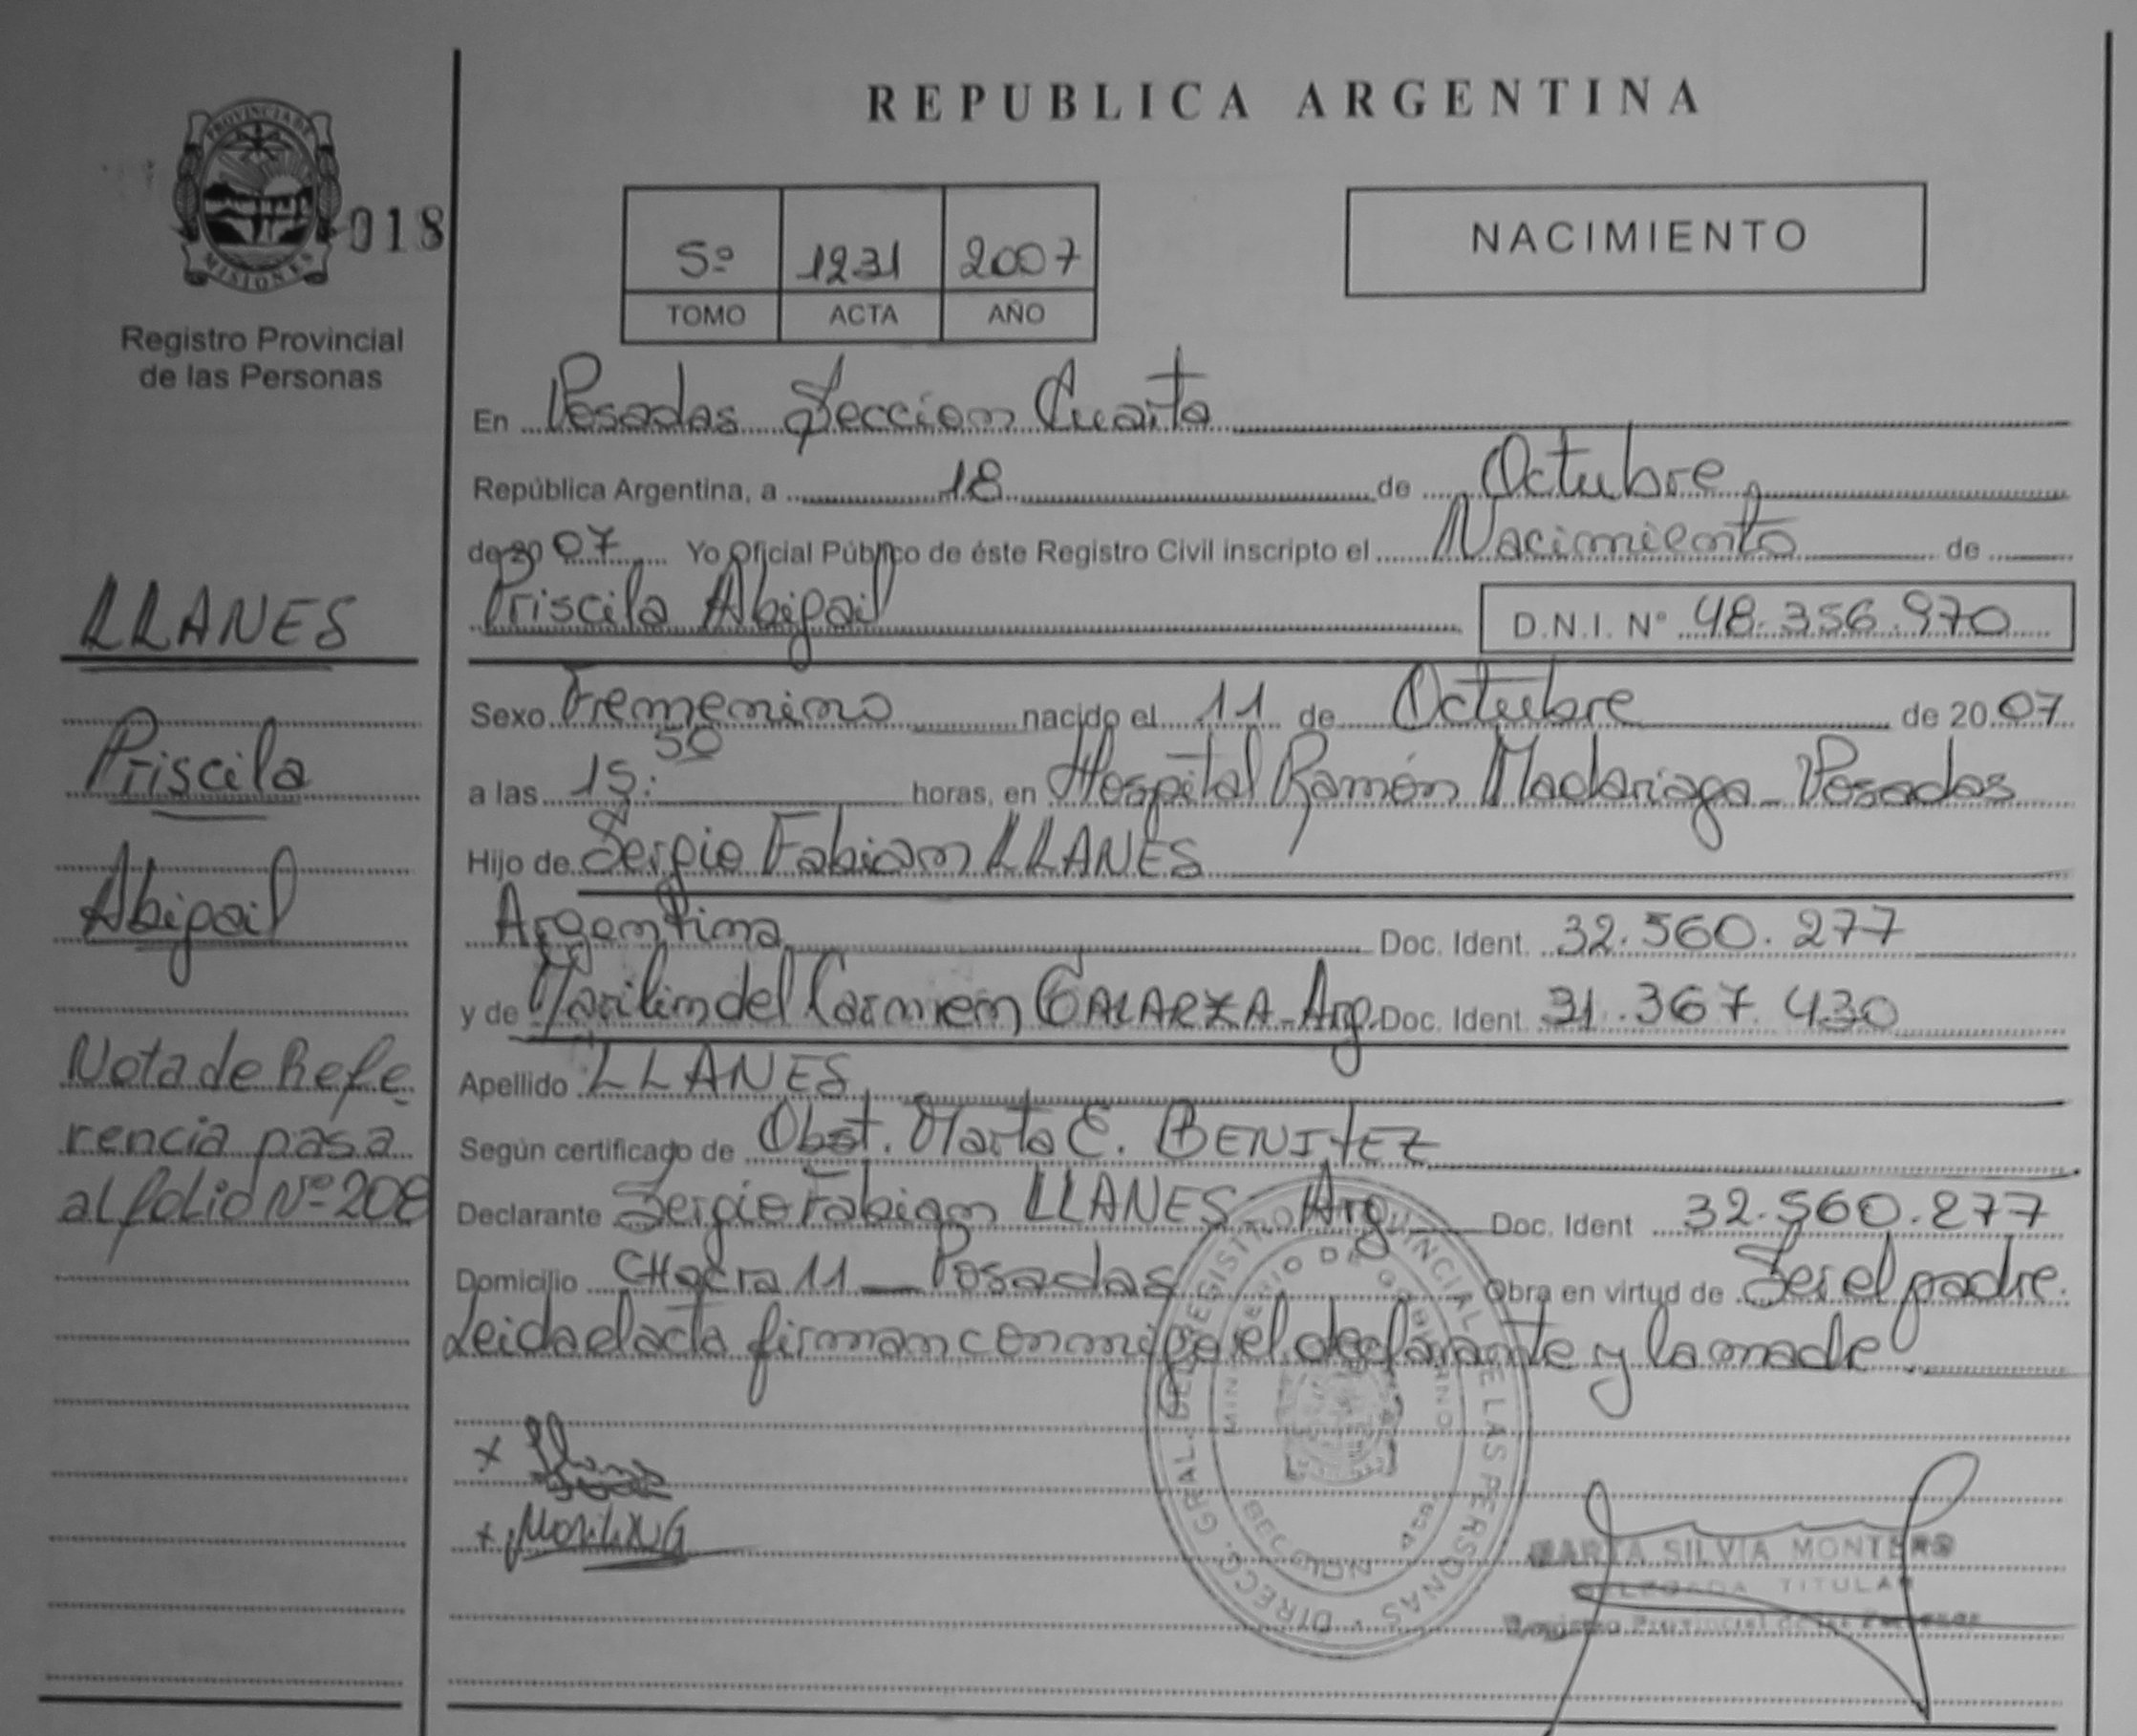 REPUBLICA ARGENTINA
PROVINCIA DE
MISIONES
018
Registro Provincial
de las Personas
5º 1231 2007
TOMO ACTA AÑO
NACIMIENTO
En Posadas Seccion Cuarta
República Argentina, a 18 de Octubre
de 20 07 Yo Oficial Público de éste Registro Civil inscripto el Nacimiento de
Priscila Abigail D.N.I. Nº 48.356.970
Sexo Femenino nacido el 11 de Octubre de 20 07
a las 15:50 horas, en Hospital Ramón Madariaga - Posadas
Hijo de Sergio Fabian LLANES
Argentina Doc. Ident. 32.560.277
y de Marilin del Carmen GALARZA - Arg. Doc. Ident. 31.367.430
Apellido LLANES
Según certificado de Obst. Marta E. BENITEZ
Declarante Sergio Fabian LLANES - Arg. Doc. Ident 32.560.277
Domicilio CHacra 11 - Posadas Obra en virtud de Ser el padre.
Leida el acta firman conmigo el declarante y la madre
LLANES
Priscila
Abigail
Nota de Refe-
rencia pasa
al folio Nº 208
DIRECC. GRAL. DEL REGISTRO PROVINCIAL DE LAS PERSONAS
MINISTERIO DE GOBIERNO
SECCION 4ta
MARTA SILVIA MONTERO
DELEGADA TITULAR
Registro Provincial de las Personas